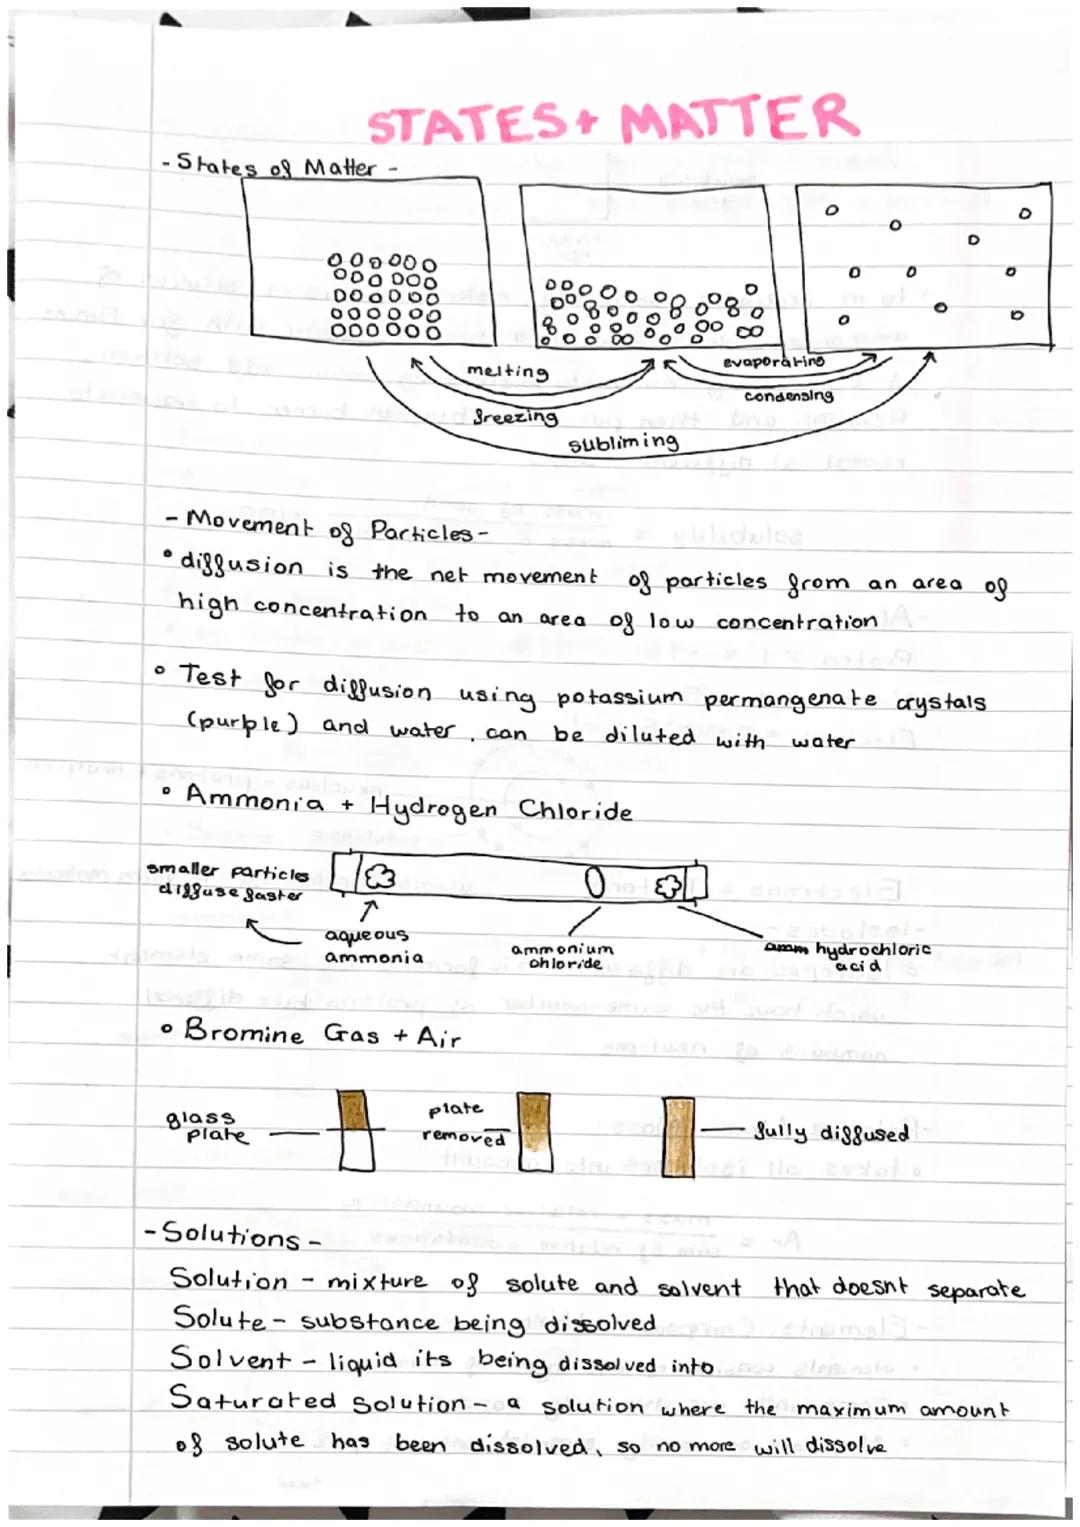 STATES + MATTER
- States of Matter -
melting
freezing
evaporating
condensing
subliming
- Movement of Particles -
• diffusion is the net movement of particles from an area of
high concentration to an area of low concentration
• Test for diffusion using potassium permangenate crystals
(purple) and water. can be diluted with water
• Ammonia + Hydrogen Chloride
smaller particles
diffuse faster
aqueous
ammonia
ammonium
chloride
hydrochloric
acid
• Bromine Gas + Air
glass
plate
plate
removed
fully diffused
- Solutions -
Solution - mixture of solute and solvent that doesnt separate
Solute - substance being dissolved
Solvent - liquid its being dissolved into
Saturated Solution - a solution where the maximum amount
of solute has been dissolved, so no more will dissolve